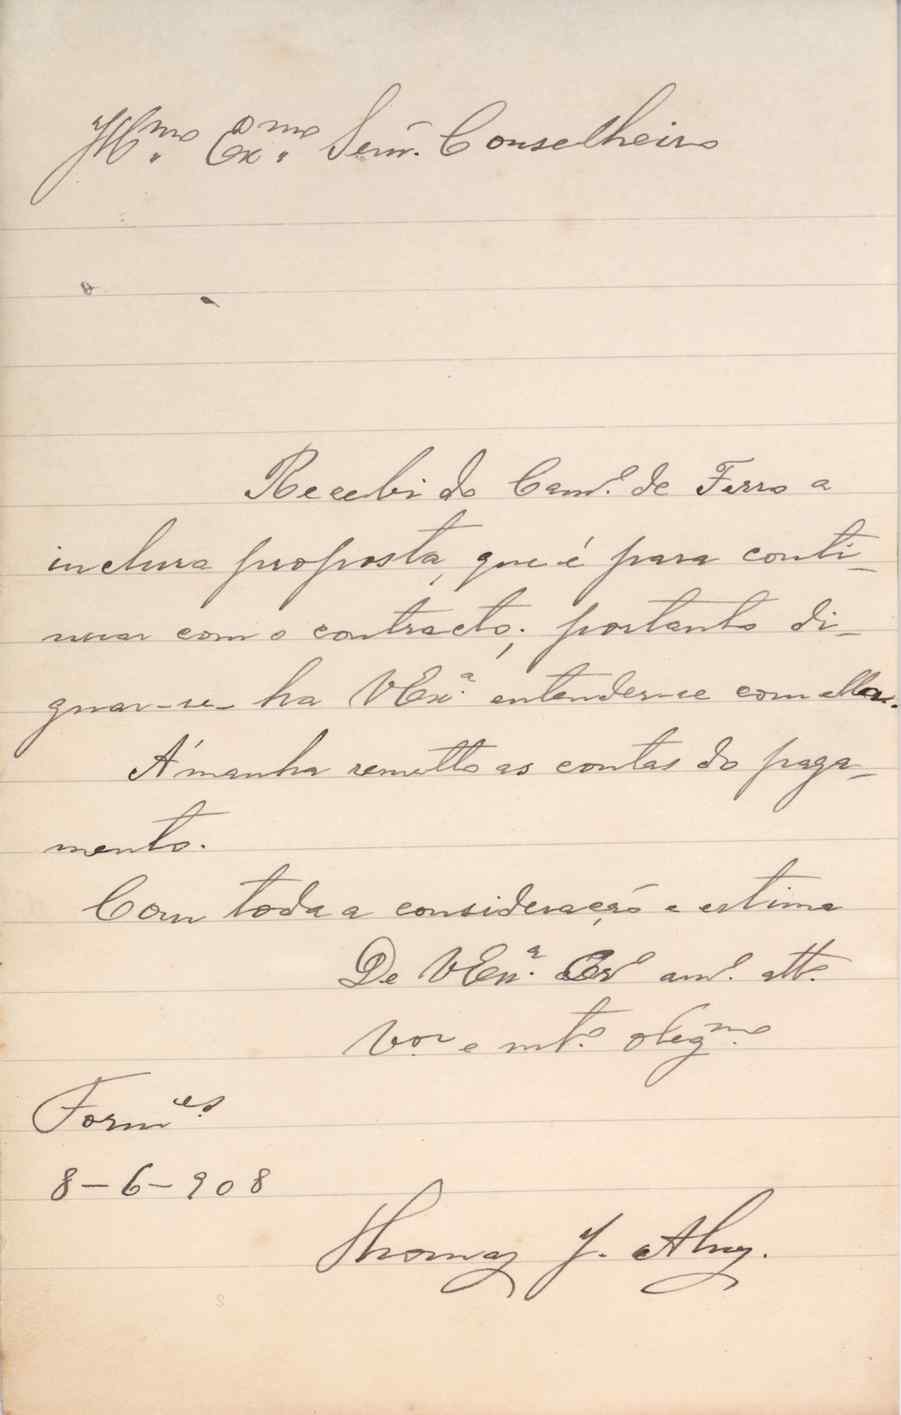 Illmo. Exmo. Senr. Conselheiro
Recebi do Camo. de Ferro a
inclusa proposta, que é para conti-
nuar com o contracto; portanto di-
gnar-se-ha V Exa. entender-se com ella.
Ámanha remetto as contas do paga-
mento.
Com toda a consideração e estima
De V Exa. Cro. amo. atto.
Vor. e mto. obrgmo.
Formes.
8-6-908
Thomaz J. Alvz.